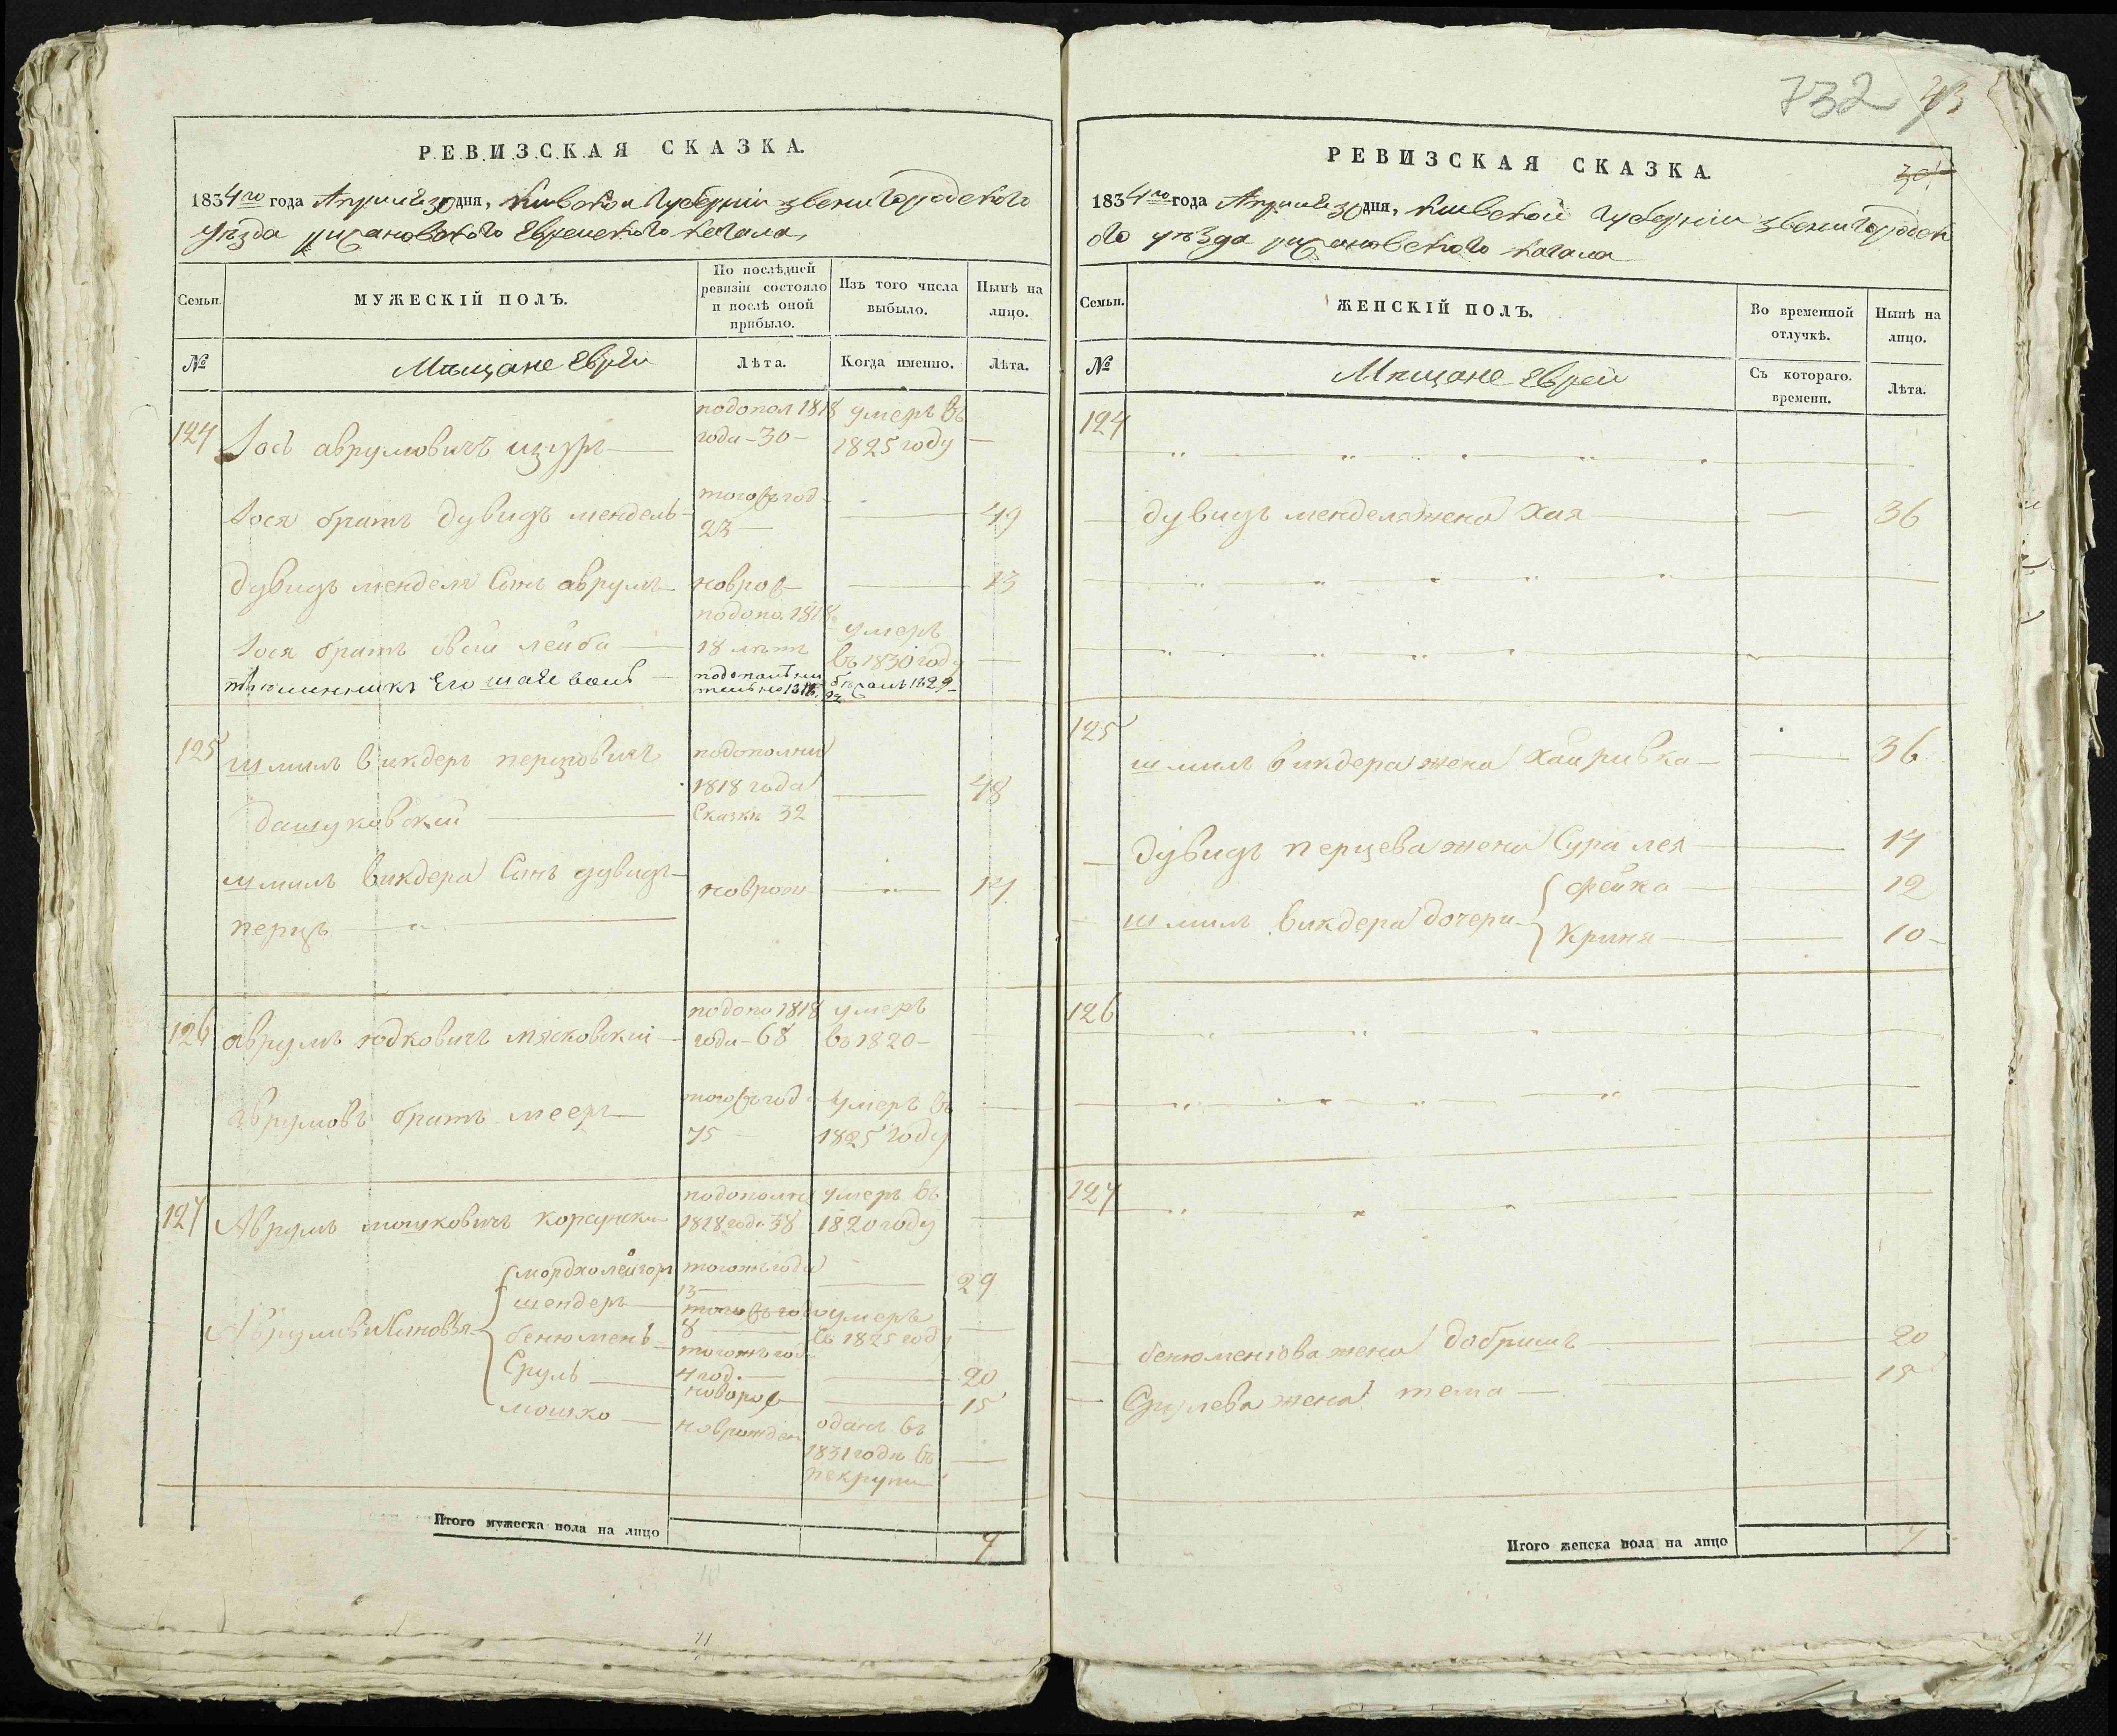 732
РЕВИЗСКАЯ СКАЗКА.
1834го года Апреля 30 дня, Киевской Губернии Звенигородского
уезда рижановского Еврейского Кагала,
Семьи.
МУЖЕСКІЙ ПОЛЪ.
По послѣдней ревизіи состояло и послѣ оной прибыло.
Изъ того числа выбыло.
Нынѣ на лицо.
№
Мещане Евреи
Лѣта.
Когда именно.
Лѣта.
124 Іось аврумовичъ
подопол 1818 года - 30 -
умеръ въ 1825 году
Іося братъ дувидъ мендель
тогожъ год 23
49
дувидъ менделя Сынъ аврумъ
новрож
13
Іося братъ овсій лейба
подопо. 1818 18 лѣтъ
умеръ въ 1830 году
племинникъ Его
125 шмиль викдеръ перцовичъ
дашуковский
подополни 1818 года Сказки 32
48
шмиль викдера Сынъ дувидъ
перцъ
новрож
17
126 аврумъ юдковичъ мясковский
подопо 1818 года - 68
умеръ въ 1820 -
аврумовъ братъ мееръ
тогожъ год 75
умеръ въ 1825 году
127 Аврумъ мошковичъ корсунски
подополни 1818 года 38
умеръ въ 1820 году
Аврумови Сыновья
мордхолейзор
тогожъ года 13
29
шендеръ
тогожъ год 8
умеръ въ 1825 году
бенюмень
тогожъ год 4 год.
20
Сруль
новорож
15
мошко
новрожден
оданъ въ 1831 годе въ рекруты
Итого мужеска пола на лицо
7
РЕВИЗСКАЯ СКАЗКА.
1834го года Апреля 30 дня, Киевской Губернии Звенигородск
ого уезда рижановского кагала
Семьи.
ЖЕНСКІЙ ПОЛЪ.
Во временной отлучкѣ.
Нынѣ на лицо.
№
Мещане Евреи
Съ котораго. времени.
Лѣта.
124
дувидъ менделя жена Хая
36
125
шмиль викдера жена Хаиривка
36
дувидъ перцева жена Сура лея
17
шмиль викдера дочери
фейга
12
Криня
10
126
127
бенюменова жена добришъ
20
Срулева жена тема
15
Итого женска пола на лицо
7